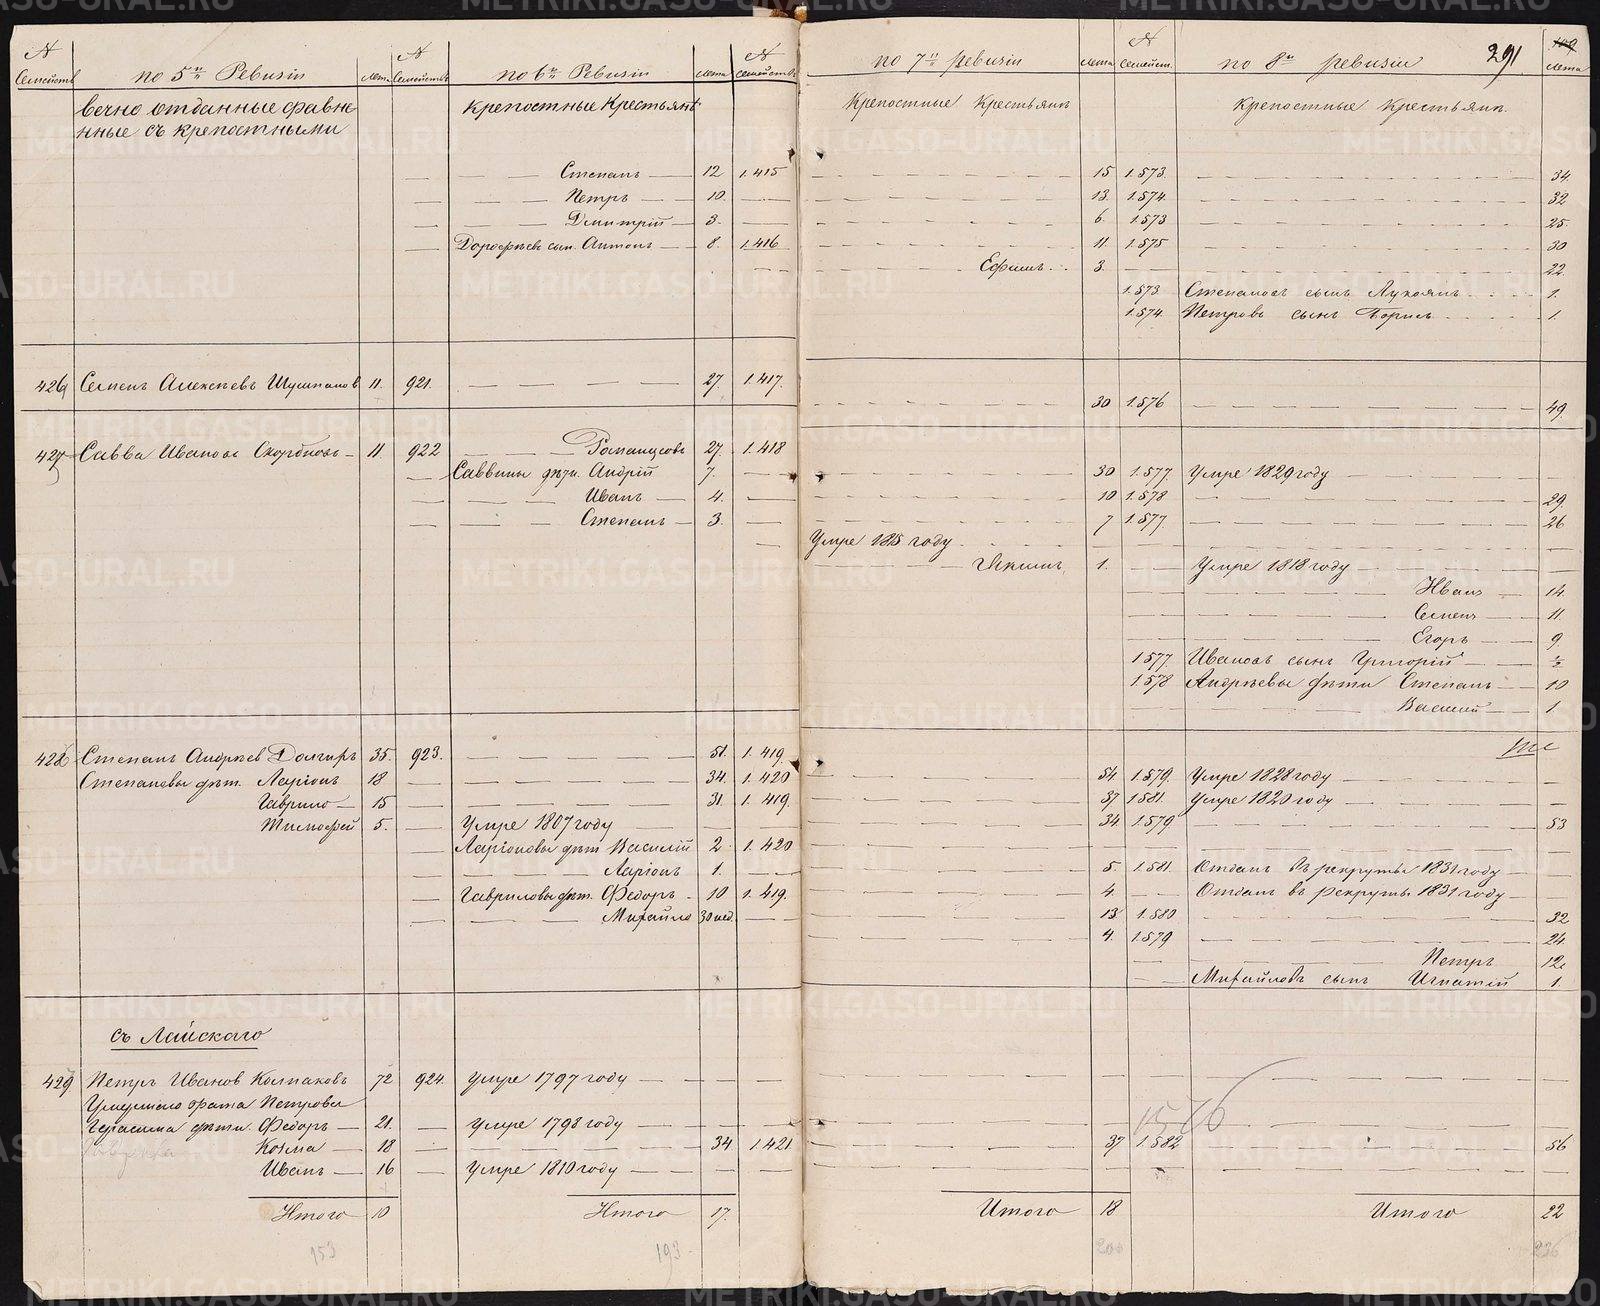 № Семействъ по 5й Ревизіи лета № Семействъ по 6й Ревизіи лета № семействъ по 7й ревизіи лета № семейст. по 8й ревизіи 291 109 лета
вечно отданные сравне
нные съ крепостными
Крепостные Крестьяне
Крепостные Крестьяне
Крепостные Крестьяне
Степанъ 12 1.415 15 1.573. 34.
Петръ 10. 13. 1.574. 32
Дмитрій 3. 6. 1.573 25.
Дорофѣевъ сын. Антонъ 8. 1.416 11. 1.575 30
Ефимъ 3. 22.
1.573. Степановъ сынъ Лукоянъ 1.
1.574. Петровъ сынъ Борисъ 1.
426 Семенъ Алексѣевъ Шумпановъ 11. 921. 27. 1.417.
30 1.576 49.
427 Савва Ивановъ 11 922 Романцовъ 27. 1.418
Саввины дѣти. Андрій 7. 30 1.577. Умре 1829 году
Иванъ 4. 10 1.578 29.
Степанъ 3. 7 1.577. 26
Умре 1815 году
Якимъ 1. Умре 1818 году
Иванъ 14.
Семенъ 11.
Егоръ 9
1577. Ивановъ сынъ Григорій ½
1.578 Андрѣевы дѣти Степанъ 10
Василій 1
428 Степанъ Андрѣев Долгиръ 35. 923. 51. 1.419.
Степановы дѣт. Ларіонъ 18 34. 1.420 54 1.579. Умре 1828 году
Гаврило 15 31. 1.419. 37 1581. Умре 1820 году
Тимофей 5. Умре 1807 году 34. 1.579 53
Ларіоновы дѣт Василій 2. 1.420
Ларіонъ 1. 5. 1.581. Отданъ въ рекруты 1831 году
Гавриловы дѣт. Федоръ 10 1.419. 4. Отданъ въ рекруты 1831 году
Михайло 30 нед. 13. 1.580 32
4. 1.579 24.
Петръ 12
Михайловъ сынъ Игнатій 1.
съ Лайскаго
429 Петръ Иванов Колпаковъ 72 924. умре 1797 году
Умершаго брата Петрова
Герасима дѣти. Федоръ 21. умре 1798 году
1576
Козма 18 34 1.421 37 1.582 56
Иванъ 16 умре 1810 году
Итого 10 Итого 17. Итого 18 Итого 22
153 193 200 236
METRIKI.GASO-URAL.RU